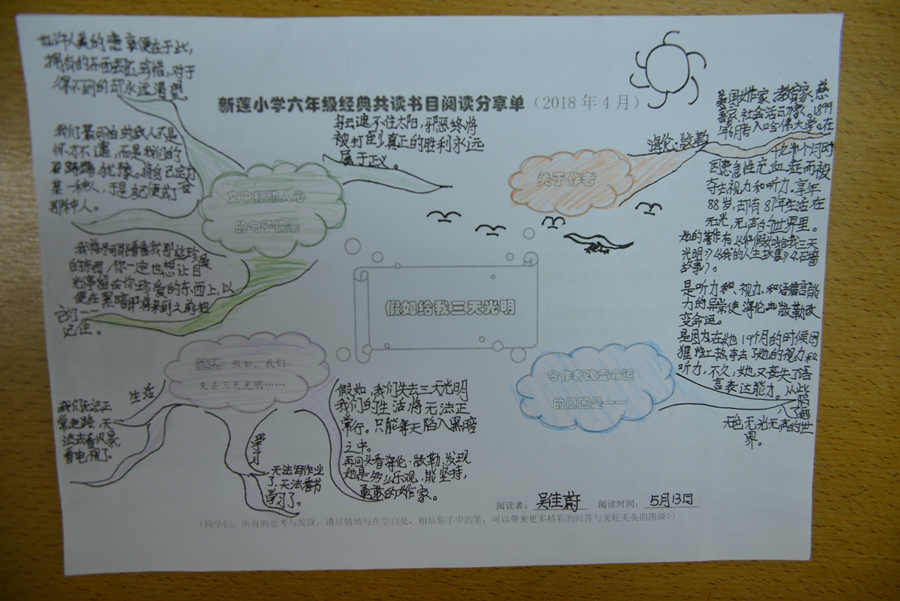 也许人类的悲哀便在于此,
拥有的东西不去珍惜,对于
得不到的却永远渴望
新莲小学六年级经典共读书目阅读分享单(2018年4月)
我们最可怕的敌人不是
怀才不遇,而是我们的
犹豫。将自己定为
某一种人,于是自己便成了
那种人。
乌云遮不住太阳,邪恶终将
被打倒,真正的胜利永远
属于正义。
文中打动人心
的句子摘录
我将尽可能看看我那些珍爱
的东西,你一定也想让目
光停留在你珍爱的东西上,以
便在黑暗即将来到之前把
它们一一
记住。
海伦·凯勒
关于作者
美国女作家、教育家、慈
善家、社会活动家。1899
年6月考入哈佛大学。在
十九个月时
因患急性充血症而被
夺去视力和听力。享年
88岁,却有87年生活在
无光、无声的世界里。
她的著作有《假如给我三天
光明》《我的人生故事》《石墙
故事》。
假如给我三天光明
是听力和、视力、和语言能
力的异常使海伦·凯勒改
变命运。
是因为在她19个月的时候因
猩红热夺去了她的视力和
听力,不久,她又丧失了语
言表达能力。从此
陷入了
无色无光无声的世
界。
令作者改变命运
的原因是——
设想:假如,我们
失去三天光明……
生活
我们无法正
常走路,无
法去看风景
看电视了。
学习
无法写作业
了,无法看书
学习了。
假如,我们失去三天光明
我们的生活将无法正
常行。只能每天陷入黑暗
之中。
再回头看海伦·凯勒,发现
她是多么乐观,能坚持,
的女作家。
阅读者:吴佳蔚 阅读时间:5月13日
(同学们,所有的思考与发现,请尽情填写在空白处,相信你手中的笔,可以带来更多精彩的回答与美轮美奂的图画!)